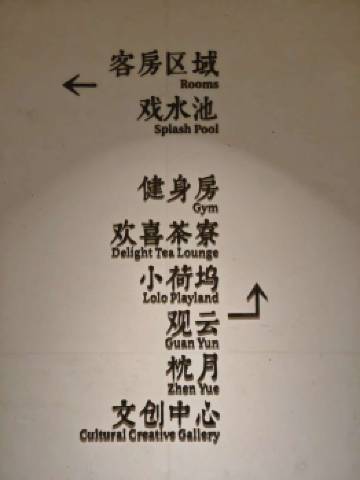 客房区域
Rooms
戏水池
Splash Pool
健身房
Gym
欢喜茶寮
Delight Tea Lounge
小荷坞
Lolo Playland
观云
Guan Yun
枕月
Zhen Yue
文创中心
Cultural Creative Gallery